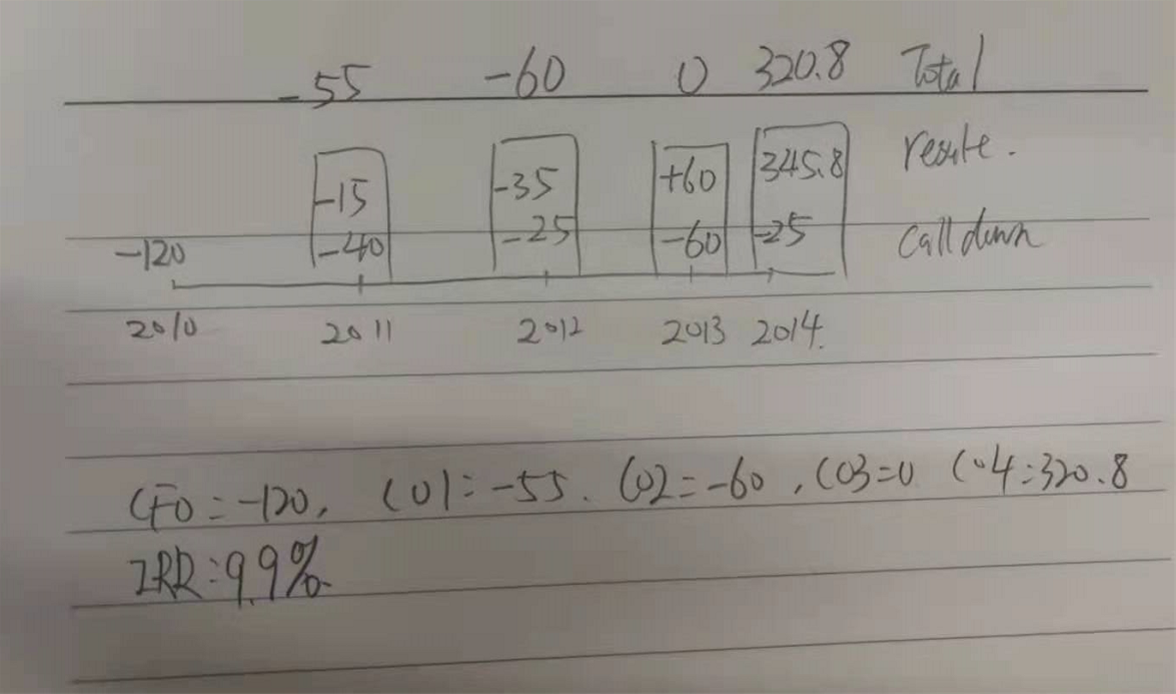 -55 -60 0 320.8 Total
-15 -35 +60 345.8 resulte.
-120 -40 -25 -60 -25 Call down
2010 2011 2012 2013 2014.
CF0=-120, C01=-55. C02=-60, C03=0 C04=320.8
IRR:9.9%